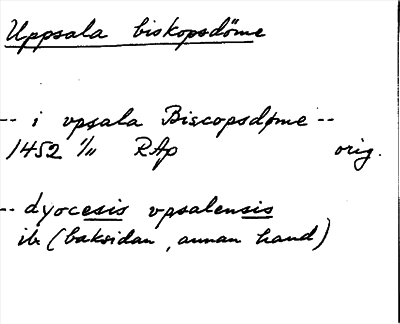 Uppsala biskopsdöme
-- i vpsala Biscopsdøme --
1452 1/11 RAp orig.
-- dyocesis vpsalensis
ib. (baksidan, annan hand)